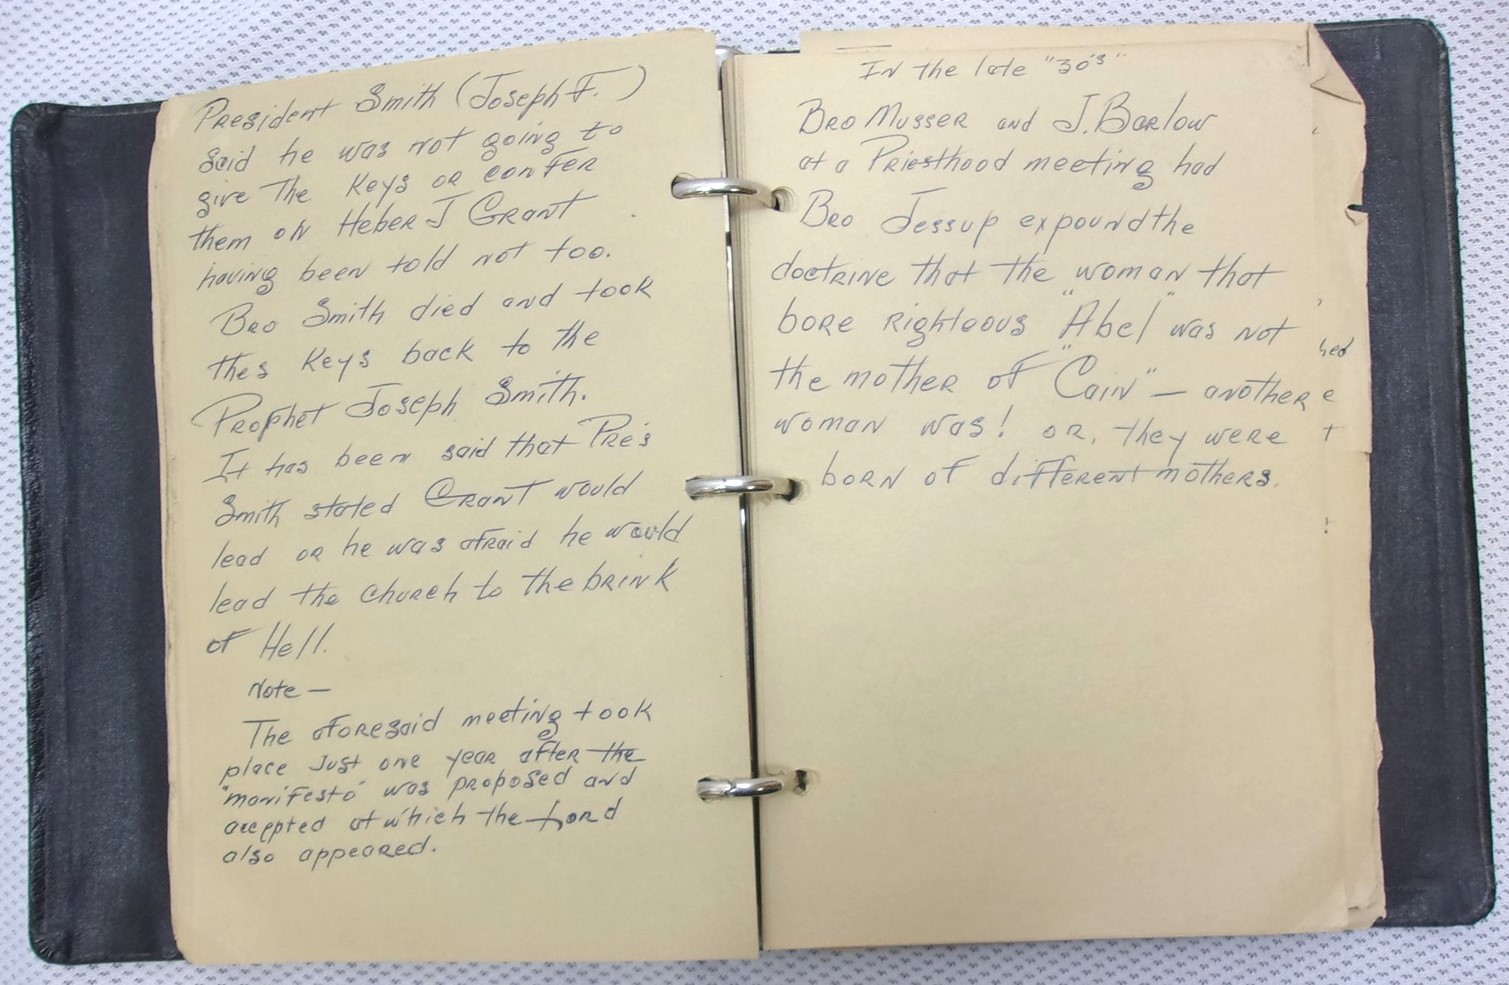 President Smith (Joseph F.)
said he was not going to
give the Keys or confer
them on Heber J Grant
having been told not too.
Bro Smith died and took
thes Keys back to the
Prophet Joseph Smith.
It has been said that Pre's
Smith stated Grant would
lead or he was afraid he would
lead the church to the brink
of Hell.
Note —
The aforesaid meeting took
place Just one year after the
"manifesto" was proposed and
accepted at which the Lord
also appeared.
In the late "30's"
Bro Musser and J. Barlow
at a Priesthood meeting had
Bro Jessup expound the
doctrine that the woman that
bore righteous "Abel" was not
the mother of "Cain" — another
woman was! or, they were
born of different mothers.